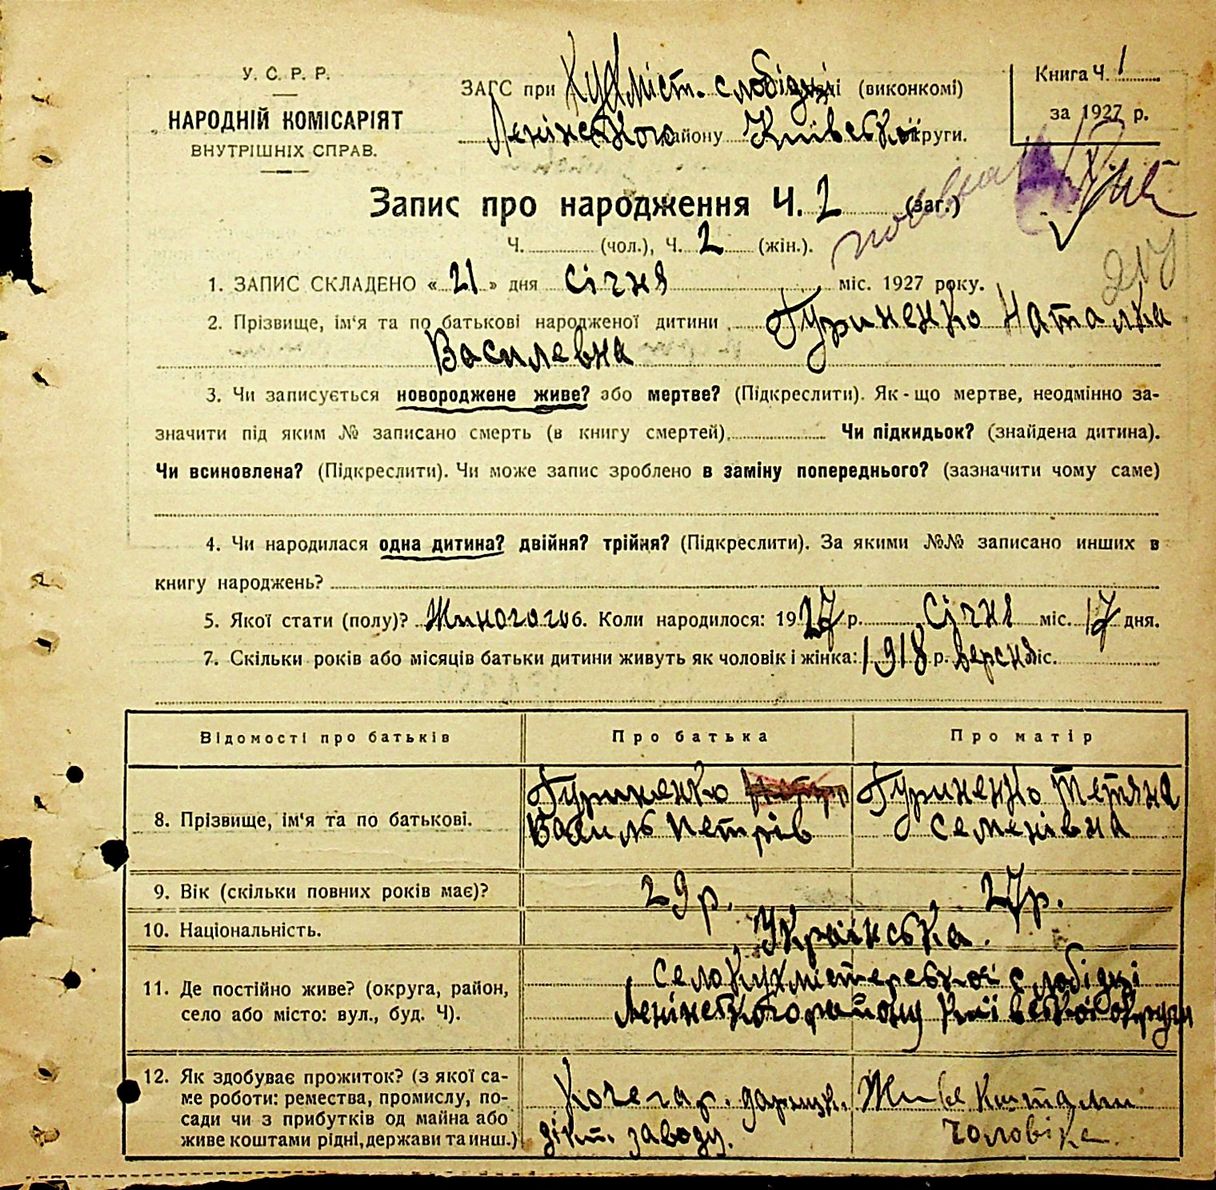 У. С. Р. Р.
НАРОДНІЙ КОМІСАРІЯТ
ВНУТРІШНІХ СПРАВ.
ЗАГС при Кухміст. слобідці (виконкомі)
Ленінського району Київської округи.
Книга Ч. 1
за 1927 р.
Запис про народження Ч. 2 (заг.)
Ч. (чол.), Ч. 2 (жін.).
217
1. ЗАПИС СКЛАДЕНО « 21 » дня січня міс. 1927 року.
2. Прізвище, ім'я та по батькові народженої дитини Гуриненко Наталка
Василевна
3. Чи записується новороджене живе? або мертве? (Підкреслити). Як-що мертве, неодмінно за-
значити під яким № записано смерть (в книгу смертей), Чи підкидьок? (знайдена дитина).
Чи всиновлена? (Підкреслити). Чи може запис зроблено в заміну попереднього? (зазначити чому саме)
4. Чи народилася одна дитина? двійня? трійня? (Підкреслити). За якими №№ записано инших в
книгу народжень?
5. Якої стати (полу)? Жиногого 6. Коли народилося: 1927 р. Січня міс. 17 дня.
7. Скільки років або місяців батьки дитини живуть як чоловік і жінка: 1918 р. версня міс.
Відомості про батьків Про батька Про матір
8. Прізвище, ім'я та по батькові.
Гуриненко
Василь Петрів
Гуриненко Тетяна
Семенівна
9. Вік (скільки повних років має)? 29 р. 27 р.
10. Національність. Українська.
11. Де постійно живе? (округа, район,
село або місто: вул., буд. Ч).
село Кухмістерської слобідці
Ленінського району Київської округи
12. Як здобуває прожиток? (з якої са-
ме роботи: ремества, промислу, по-
сади чи з прибутків од майна або
живе коштами рідні, держави та инш.)
Кочегар. дарницк.
заводу.
Живе коштами
чоловіка